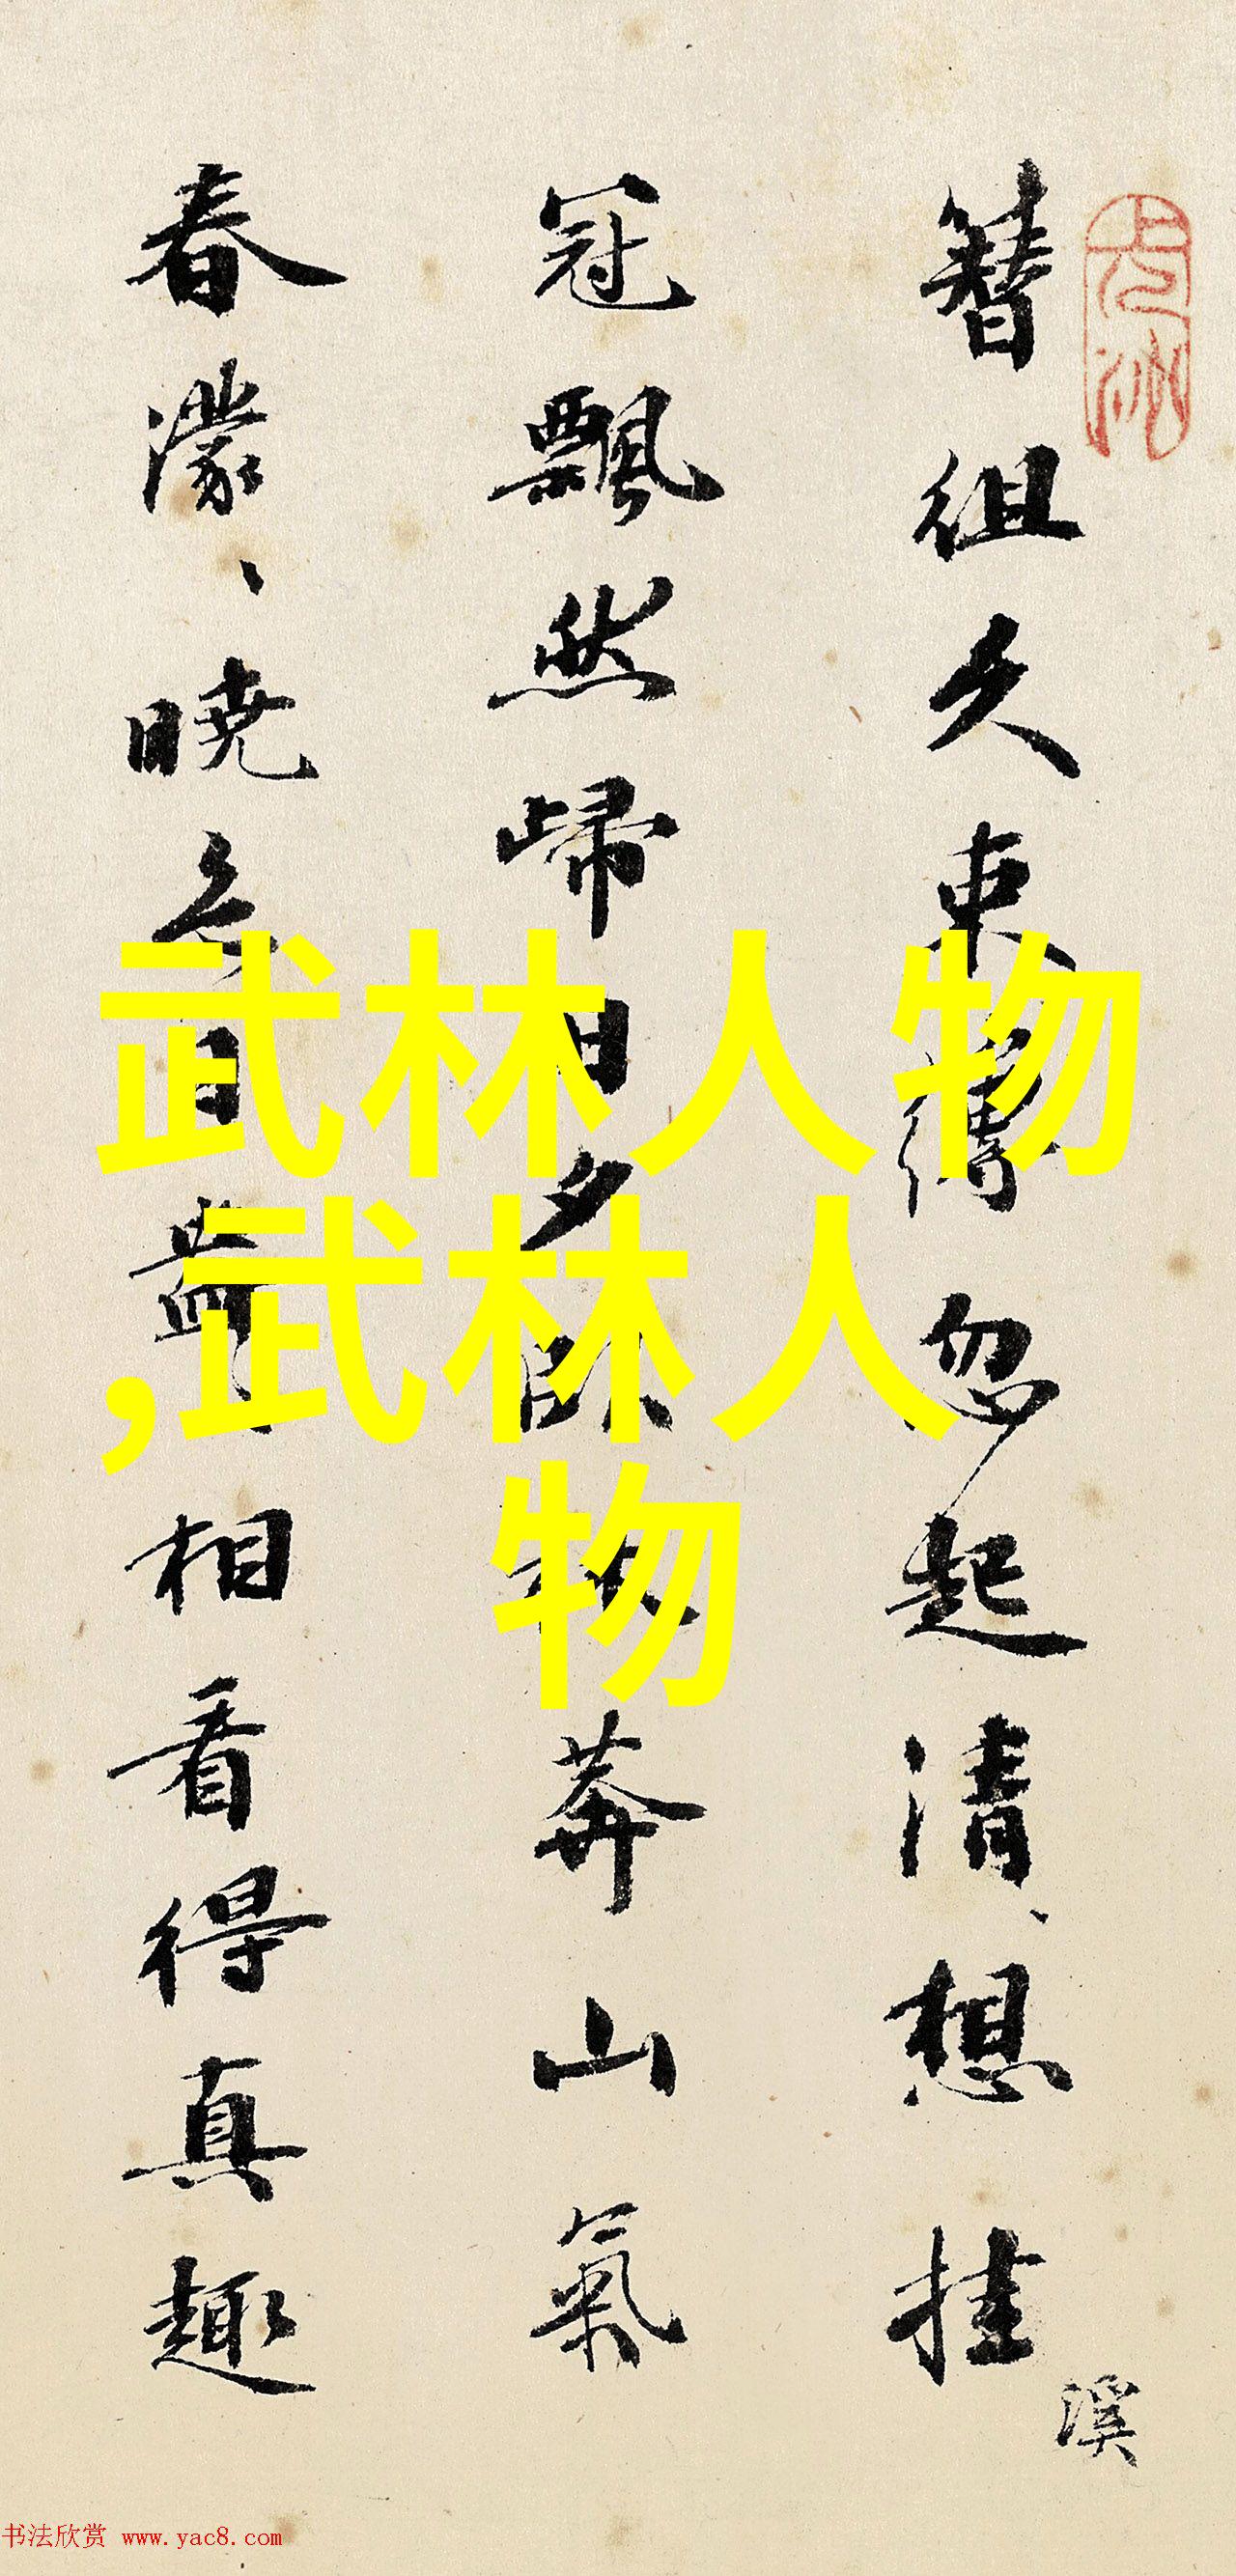 簪组久束缚忽起清想挂
溪
冠飘然歸日夕臥
莽山氣
春濛、曉
相看得真趣
武林人物
,武林人
物
书法欣赏 www.yac8.com